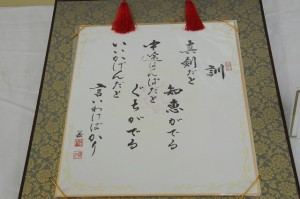 訓
真剣だと
知恵がでる
中途はんぱだと
ぐちがでる
いいかげんだと
言いわけばかり